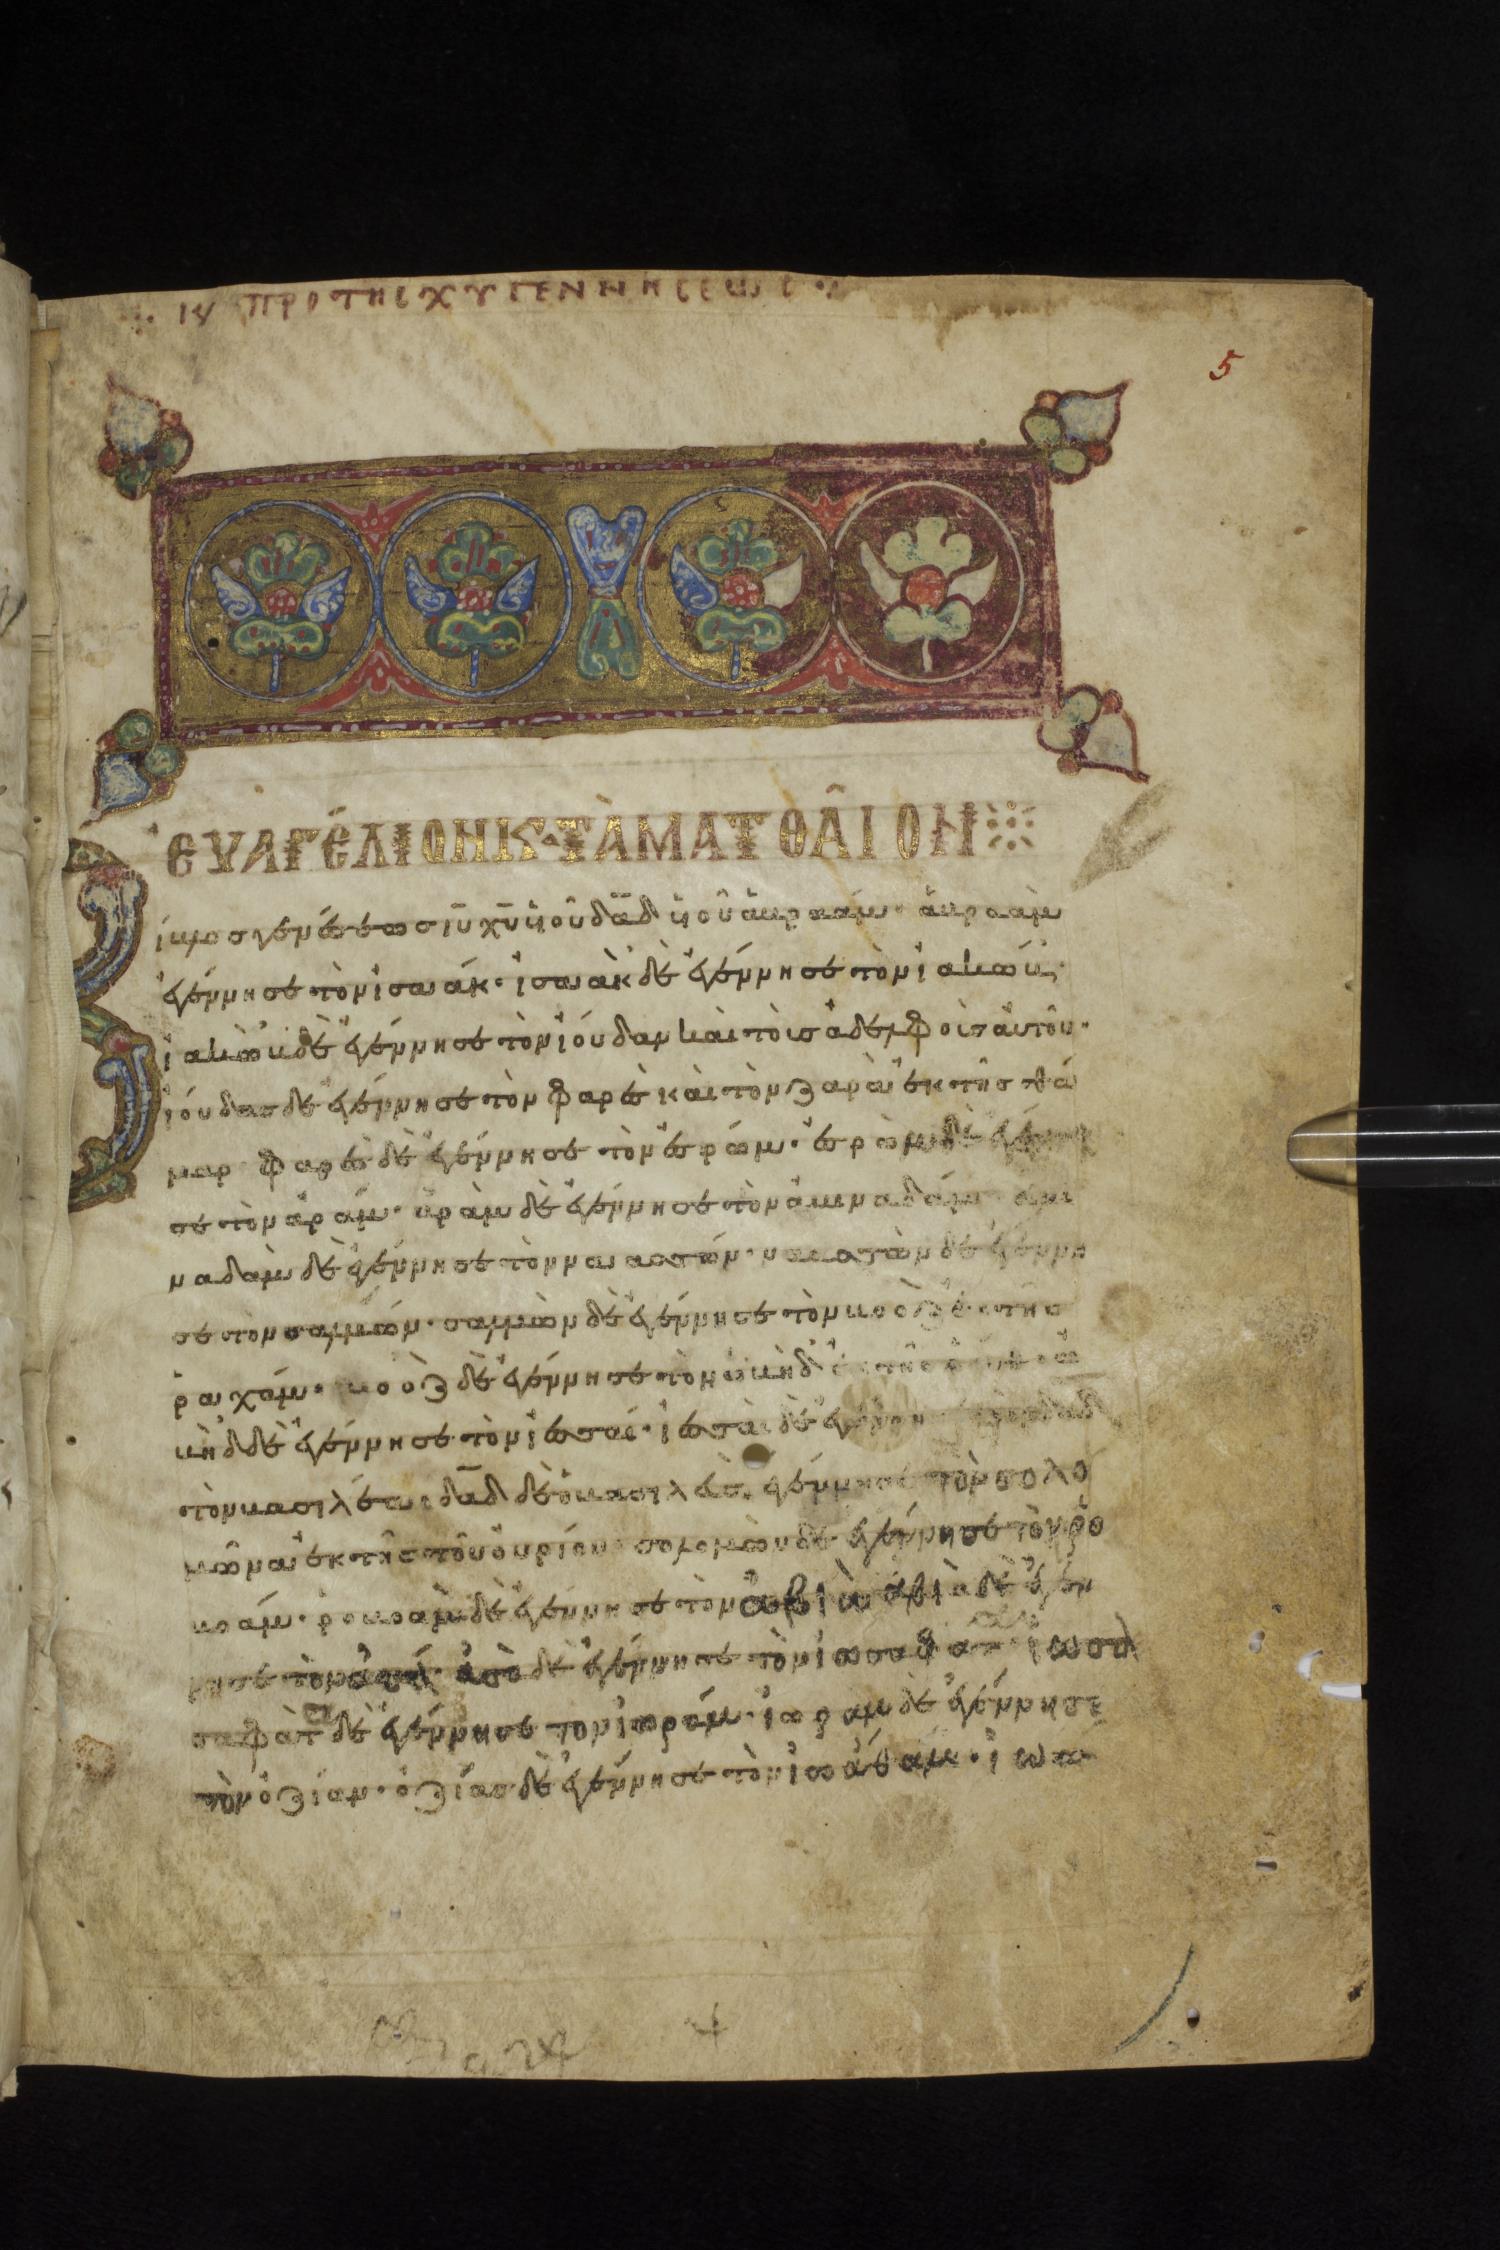 κυ προ της χυ γεννησεως
5
ἐυαγέλιον κ τὰ ματθᾶιον
ίβλος γενέσεως ιυ χυ ὑιοῦ δαδ ὑιοῦ ἀβρααμ· ἀβρααμ
ἐγέννησε τὸν ἰσαάκ· ἰσαὰκ δὲ ἐγέννησε τὸν ἰακώβ·
ἰακὼβ δὲ ἐγέννησε τὸν ἰούδαν καὶ τοὺσ ἀδελφοὺσ ἀυτοῦ·
ἰούδασ δὲ ἐγέννησε τὸν φαρὲσ κὰι τὸν ζαρὰ ἐκ τῆσ θά
μαρ φαρὲσ δὲ ἐγέννησε τὸν ἐσρώμ· ἐσρὼμ δὲ ἐγέννη
σε τὸν ἀράμ· ἀρὰμ δὲ ἐγέννησε τὸν ἀμιναδάμ ἀμι
ναδὰμ δὲ ἐγέννησε τὸν ναασσών· ναασσὼν δὲ ἐγέννη
σε τὸν σαλμών· σαλμὼν δὲ ἐγέννησε τὸν βοὸζ ἐκ τῆσ
ῥαχάμ· βοὸζ δὲ ἐγέννησε τὸν ὠβὴδ ἐκ τῆσ ὠ
βὴδ δὲ ἐγέννησε τὸν ἰεσσαί· ἰεσσαὶ δὲ ἐγέννησε τὸν δαδ
τὸν βασιλέα· δαδ δὲ ὁ βασιλεὺσ ἐγέννησε τὸν σολο
μῶνα ἐκ τῆσ τοῦ ὀυρίου σολομὼν δὲ ἐγέννησε τὸν ῥο
βοάμ· ῥοβοὰμ δὲ ἐγέννησε τὸν ἀβιὰ ἀβιὰ δὲ ἐγέν
νησε τὸν ἀσά· ἀσὰ δὲ ἐγέννησε τὸν ἰωσαφατ ἰωσα
σαφὰτ δὲ ἐγέννησε τὸν ἰωράμ· ἰωραμ δὲ ἐγέννησε
τὸν ὀζίαν· ὀζίασ δὲ ἐγέννησε τὸν ἰωάθαμ· ἰωα